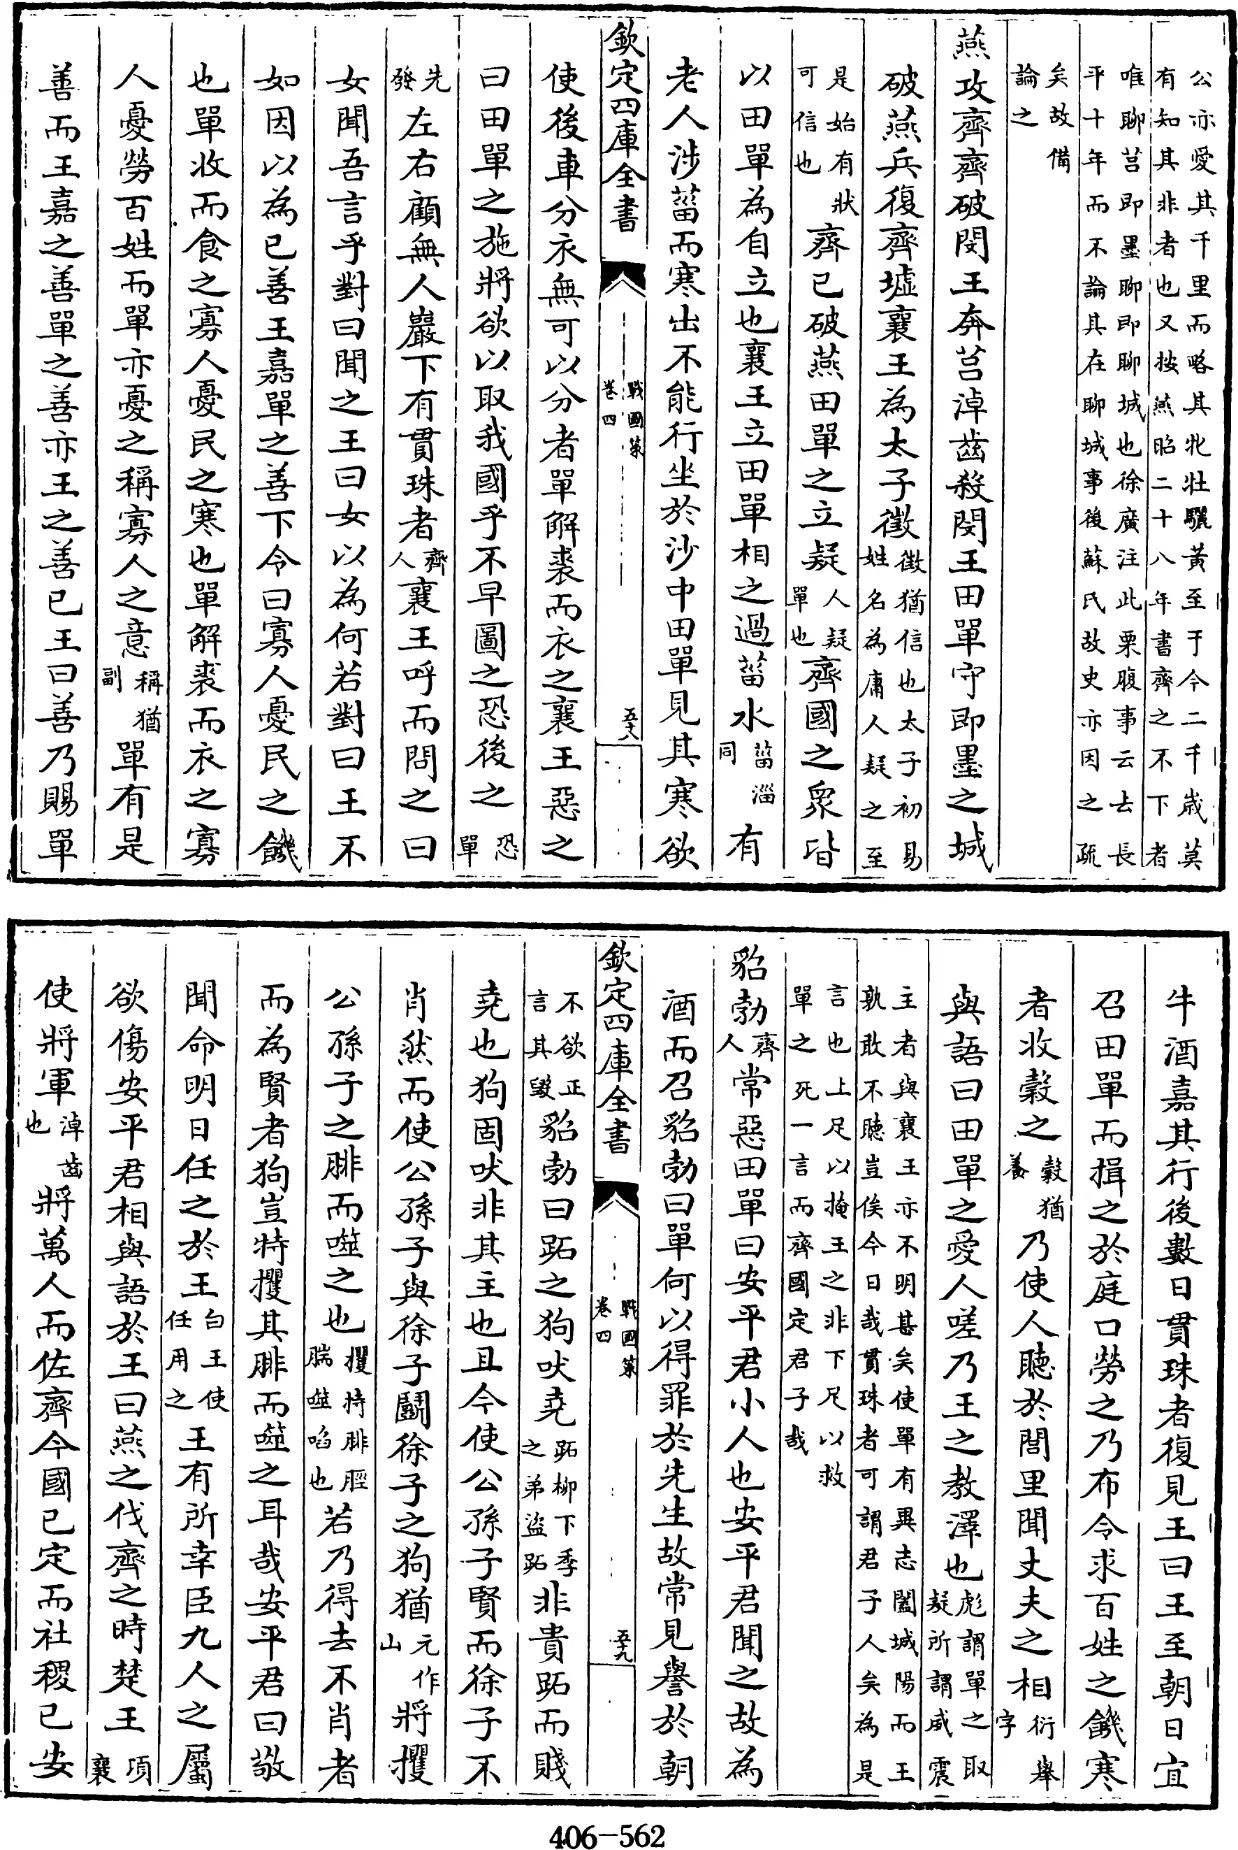 公亦愛其千里而略其牝壮驪黄至于今二千歳莫
有知其非者也又按燕昭二十八年書齊之不下者
唯聊莒即墨聊即聊城也徐廣注此栗腹事云去長
平十年而不論其在聊城事後蘇氏故史亦因之疏
矣故備
論之
燕攻齊齊破閔王奔莒淖齒殺閔王田單守即墨之城
破燕兵復齊墟襄王為太子徵徵猶信也太子初易姓名為庸人疑之至
是始有狀可信也齊已破燕田單之立疑人疑單也齊國之衆皆
以田單為自立也襄王立田單相之過菑水菑淄同有
老人涉菑而寒出不能行坐於沙中田單見其寒欲
欽定四庫全書
戰國策
卷四
五八
使後車分衣無可以分者單解裘而衣之襄王惡之
曰田單之施將欲以取我國乎不早圖之恐後之恐單
先發左右顧無人巖下有貫珠者齊人襄王呼而問之曰
女聞吾言乎對曰聞之王曰女以為何若對曰王不
如因以為已善王嘉單之善下令曰寡人憂民之饑
也單收而食之寡人憂民之寒也單解裘而衣之寡
人憂勞百姓而單亦憂之稱寡人之意稱猶副單有是
善而王嘉之善單之善亦王之善已王曰善乃賜單
牛酒嘉其行後數日貫珠者復見王曰王至朝日宜
召田單而揖之於庭口勞之乃布令求百姓之饑寒
者收穀之穀猶養乃使人聽於閭里聞丈夫之相衍舉字
與語曰田單之愛人嗟乃王之教澤也彪謂單之取疑所謂威震
主者與襄王亦不明甚矣使單有異志闔城陽而王
孰敢不聽豈俟今日哉貫珠者可謂君子人矣為是
言也上足以掩王之非下足以救
單之死一言而齊國定君子哉
貂勃齊人常惡田單曰安平君小人也安平君聞之故為
酒而召貂勃曰單何以得罪於先生故常見譽於朝
欽定四庫全書
戰國策
卷四
五九
不欲正言其毀貂勃曰跖之狗吠堯跖柳下季之弟盜跖非貴跖而賤
堯也狗固吠非其主也且今使公孫子賢而徐子不
肖然而使公孫子與徐子鬭徐子之狗猶元作山將攫
公孫子之腓而噬之也攫持腓脛腨噬啗也若乃得去不肖者
而為賢者狗豈特攫其腓而噬之耳哉安平君曰敬
聞命明日任之於王白王使任用之王有所幸臣九人之屬
欲傷安平君相與語於王曰燕之伐齊之時楚王頃襄
使將軍淖齒也將萬人而佐齊今國已定而社稷已安
406-562